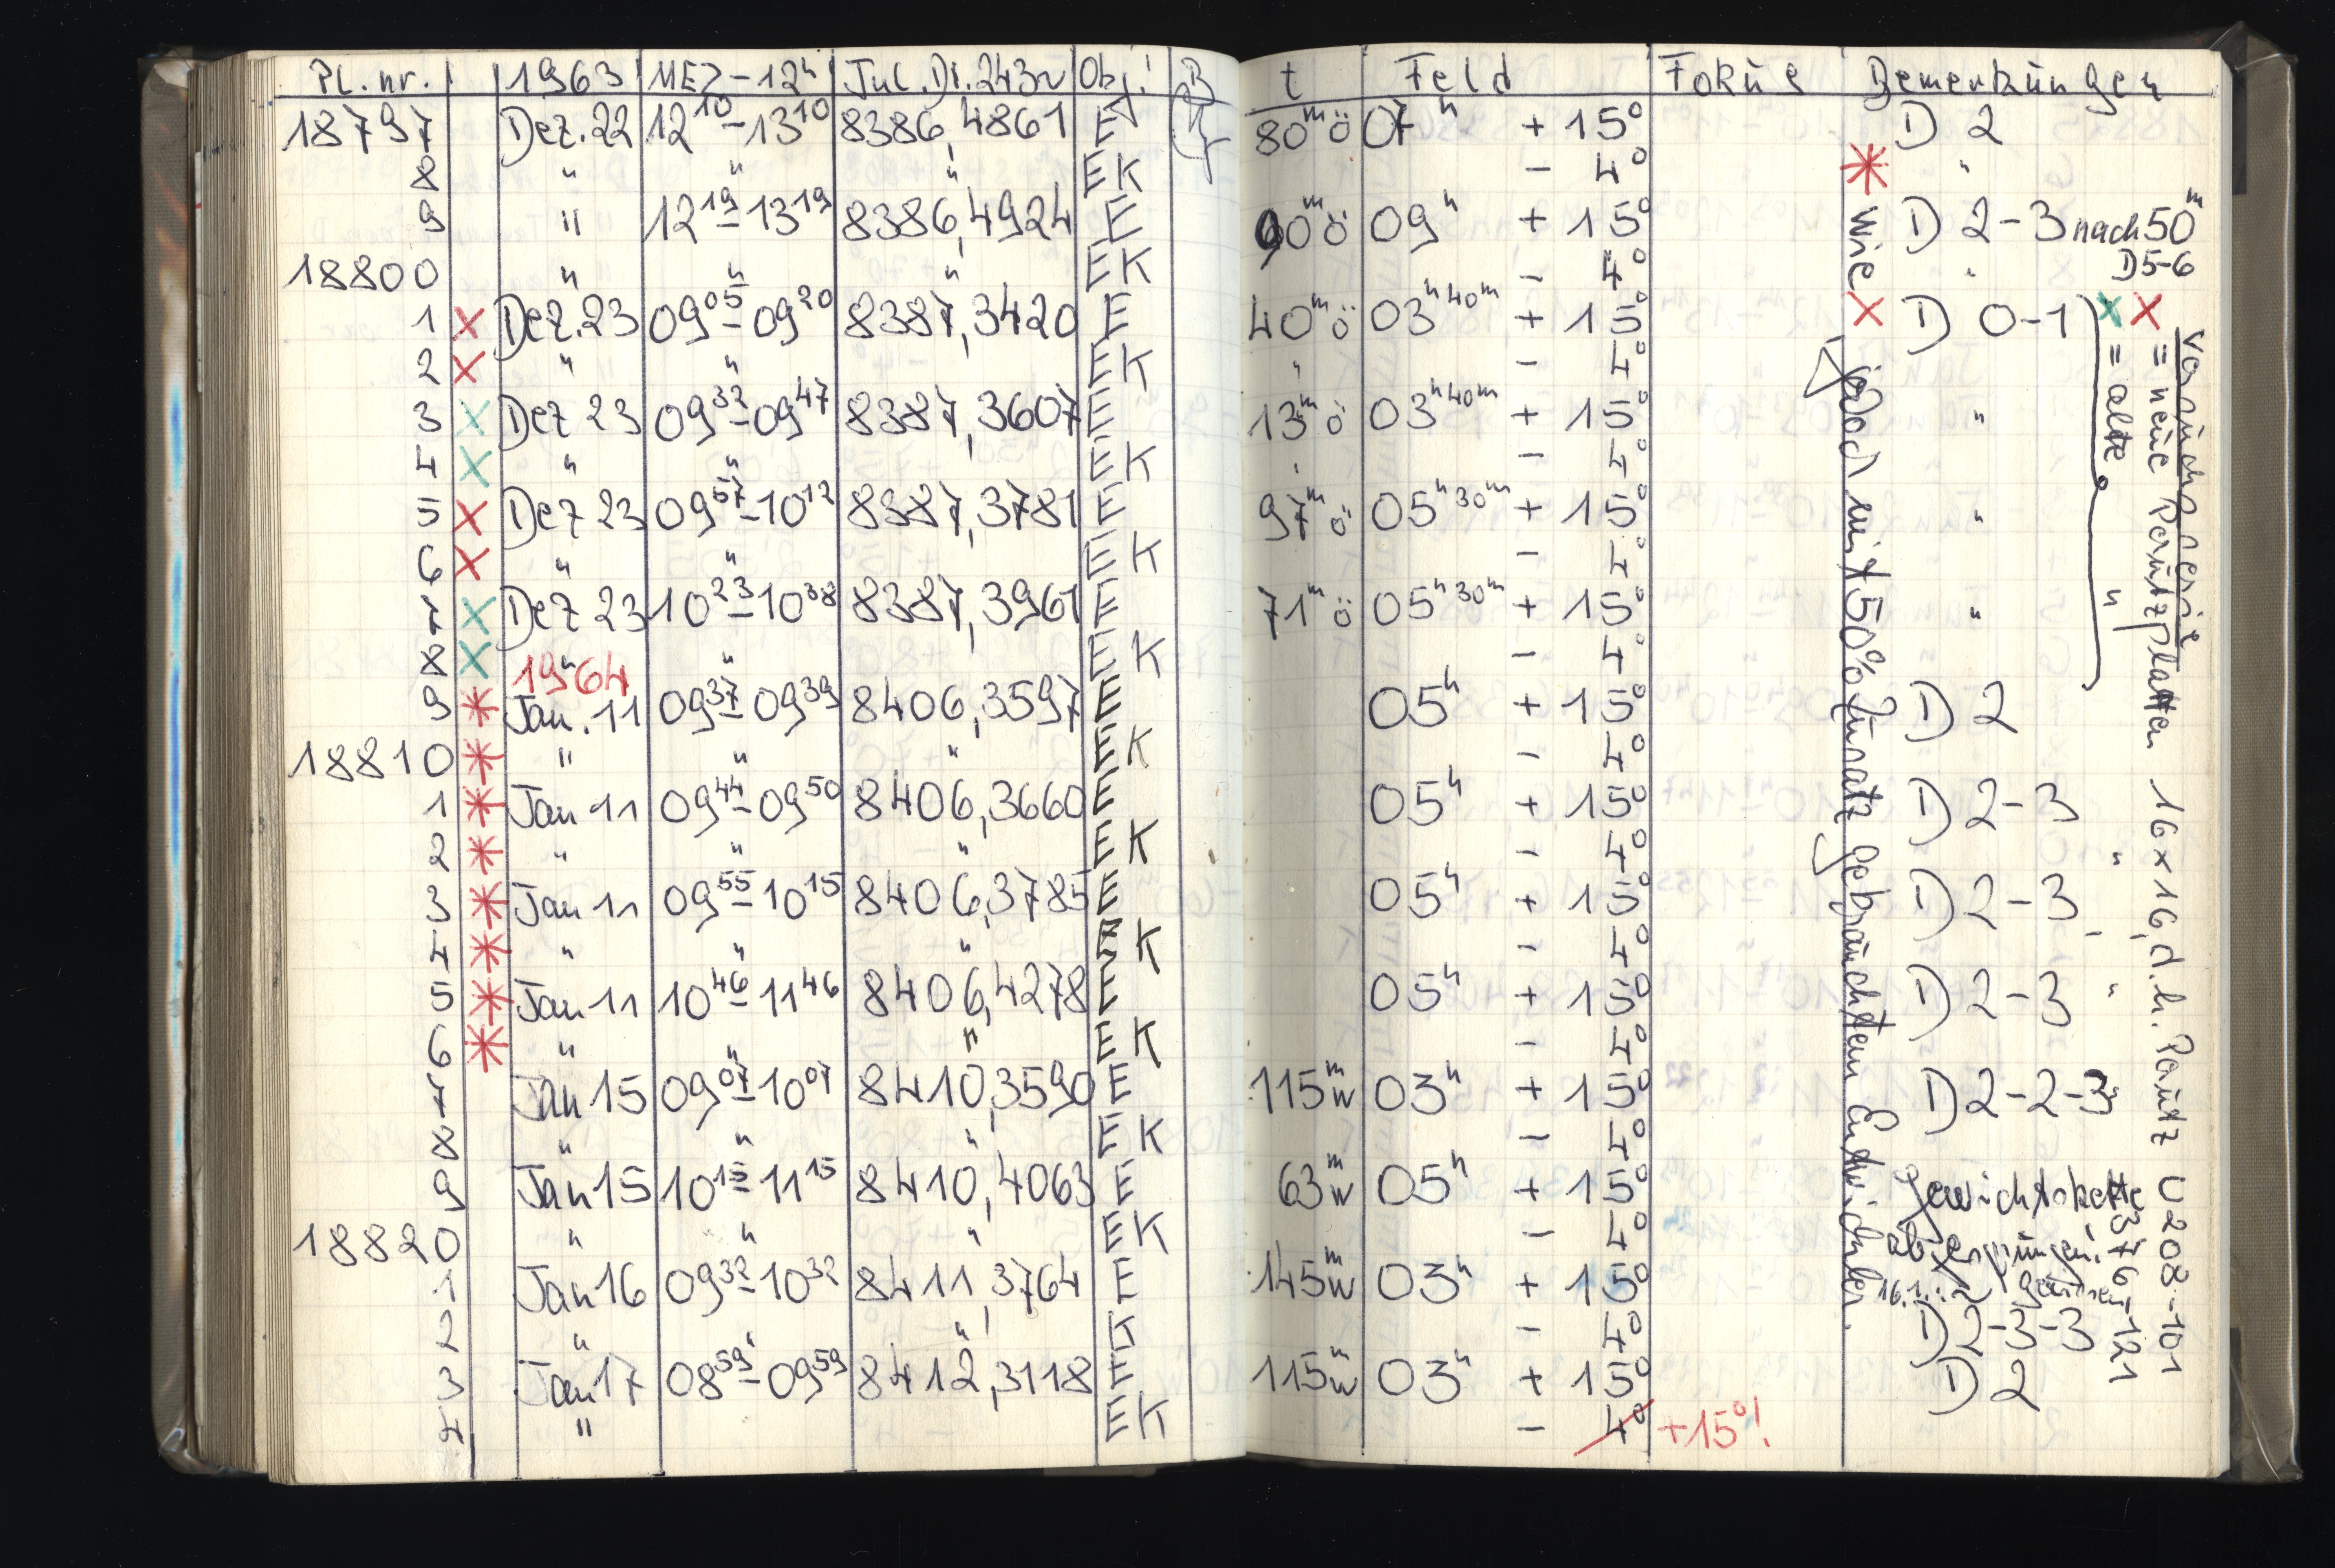 Pl.nr. 1963 MEZ-12ʰ Jul.D. 243ν Obj. B t Feld Fokus Bemerkungen
18797 Dez.22 12¹⁰-13¹⁰ 8386,4861 E 80ᵐö 07ʰ +15° D 2
8 " " " EK -4° * "
9 " 12¹⁹-13¹⁹ 8386,4924 E 60ᵐö 09ʰ +15° D 2-3 nach 50ᵐ
18800 " " " EK -4° " D5-6
1 × Dez.23 09⁰⁵-09²⁰ 8387,3420 E 40ᵐö 03ʰ⁴⁰ᵐ +15° D 0-1
2 × " " EK " -4°
3 × Dez 23 09³²-09⁴⁷ 8387,3607 E 13ᵐö 03ʰ⁴⁰ᵐ +15° "
4 × " " EK " -4°
5 × Dez 23 09⁵⁷-10¹² 8387,3781 E 97ᵐö 05ʰ³⁰ᵐ +15° "
6 × " " EK -4°
7 × Dez 23 10²³-10³⁸ 8387,3961 E 71ᵐö 05ʰ³⁰ᵐ +15° "
8 × " " EK -4°
1964
9 * Jan.11 09³⁷-09³⁹ 8406,3597 E 05ʰ +15° D 2
18810 * " " " EK -4°
1 * Jan 11 09⁴⁴-09⁵⁰ 8406,3660 E 05ʰ +15° D 2-3
2 * " " " EK -4° "
3 * Jan 11 09⁵⁵-10¹⁵ 8406,3785 E 05ʰ +15° D 2-3
4 * " " " EK -4°
5 * Jan 11 10⁴⁶-11⁴⁶ 8406,4278 E 05ʰ +15° D 2-3 "
6 * " " " EK -4°
7 Jan 15 09⁰⁷-10⁰⁷ 8410,3590 E 115ᵐw 03ʰ +15° D 2-2-3
8 " " " EK -4°
9 Jan 15 10¹⁵-11¹⁵ 8410,4063 E 63ᵐw 05ʰ +15° Gewichtskette
18820 " " " EK -4° abgesprungen!
1 Jan 16 09³²-10³² 8411,3764 E 145ᵐw 03ʰ +15° 16.1.:
2 " " " EK -4° D 2-3-3
3 Jan 17 08⁵⁹-09⁵⁹ 8412,3118 E 115ᵐw 03ʰ +15° D 2
4 " EK -4° +15°!
* wie × jedoch mit 50% Zusatz gebrauchtem Entwickler.
Versuchsserie
× = neue Perutzplatten 16×16, d.h. Perutz U 208-101
× = alte " " 376-121